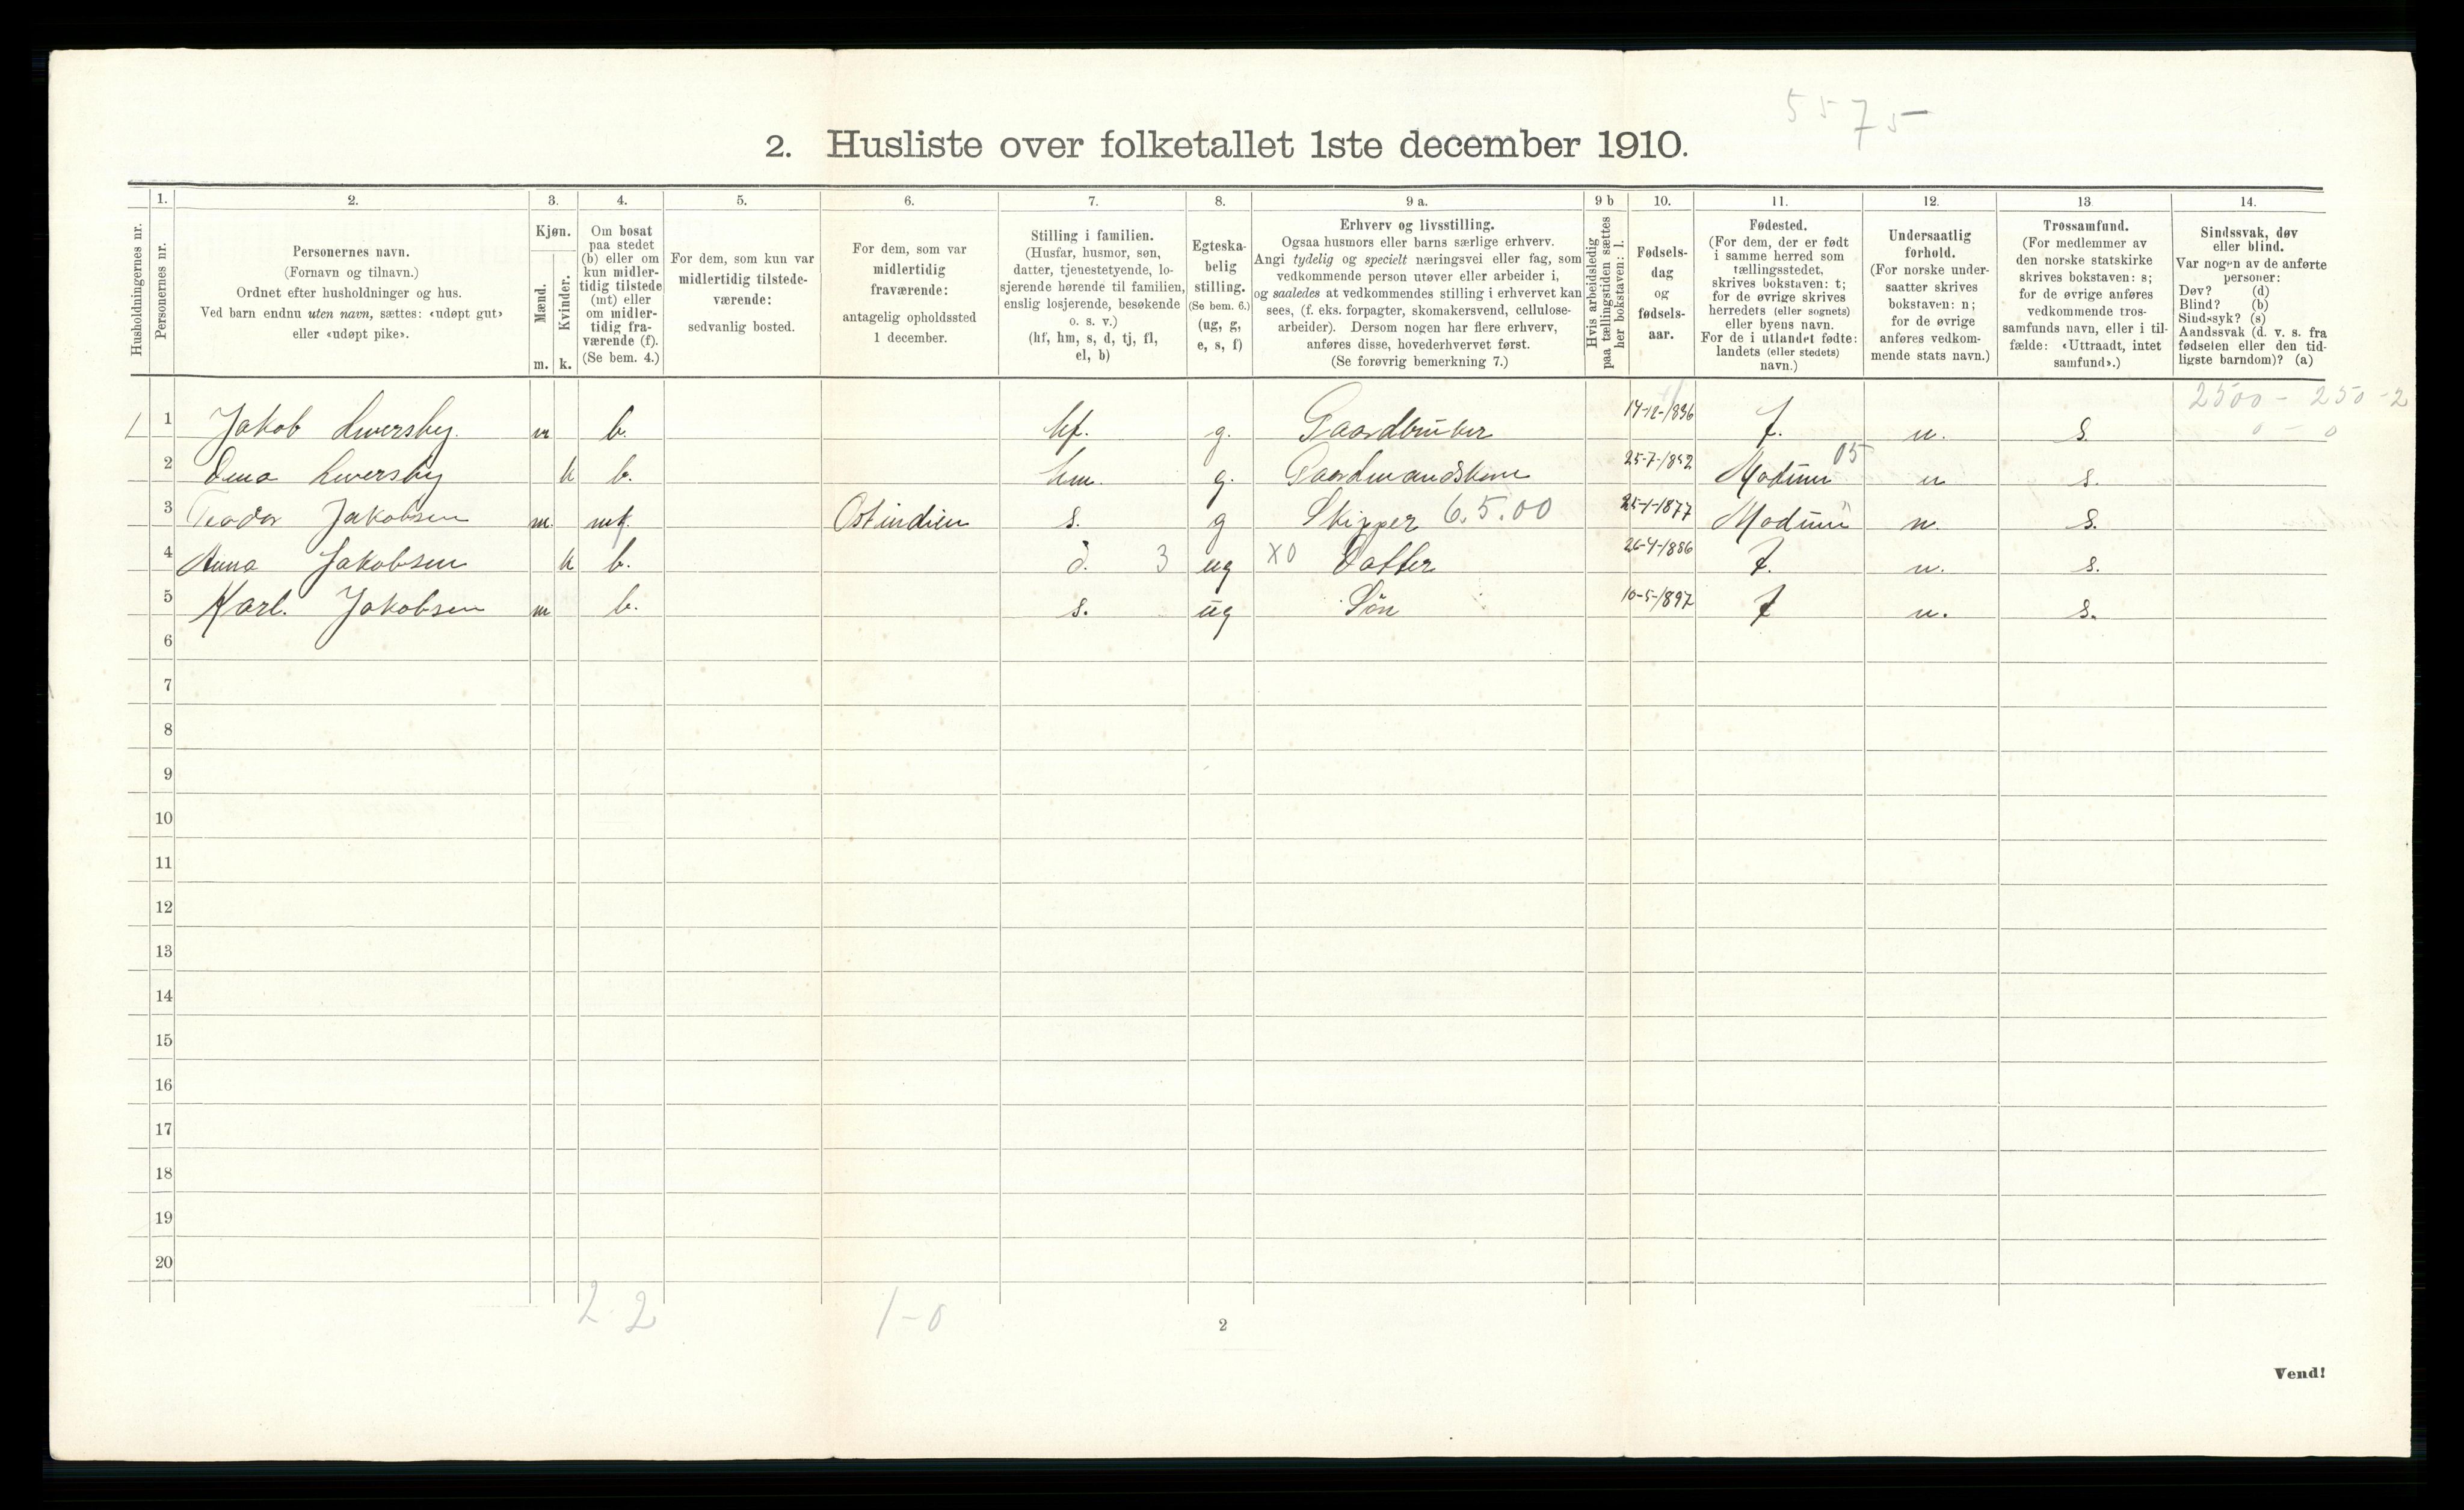 5575
2. Husliste over folketallet 1ste december 1910.
1. 2. 3. 4. 5. 6. 7. 8. 9 a. 9 b 10. 11. 12. 13. 14.
Husholdningernes nr.
Personernes nr.
Personernes navn.
(Fornavn og tilnavn.)
Ordnet efter husholdninger og hus.
Ved barn endnu uten navn, sættes: «udøpt gut»
eller «udøpt pike».
Kjøn.
Mænd.
m.
Kvinder.
k.
Om bosat
paa stedet
(b) eller om
kun midler-
tidig tilstede
(mt) eller
om midler-
tidig fra-
værende (f).
(Se bem. 4.)
For dem, som kun var
midlertidig tilstede-
værende:
sedvanlig bosted.
For dem, som var
midlertidig
fraværende:
antagelig opholdssted
1 december.
Stilling i familien.
(Husfar, husmor, søn,
datter, tjenestetyende, lo-
sjerende hørende til familien,
enslig losjerende, besøkende
o. s. v.)
(hf, hm, s, d, tj, fl,
el, b)
Egteska-
belig
stilling.
(Se bem. 6.)
(ug, g,
e, s, f)
Erhverv og livsstilling.
Ogsaa husmors eller barns særlige erhverv.
Angi tydelig og specielt næringsvei eller fag, som
vedkommende person utøver eller arbeider i,
og saaledes at vedkommendes stilling i erhvervet kan
sees, (f. eks. forpagter, skomakersvend, cellulose-
arbeider). Dersom nogen har flere erhverv,
anføres disse, hovederhvervet først.
(Se forøvrig bemerkning 7.)
Hvis arbeidsledig
paa tællingstiden sættes
her bokstaven: l.
Fødsels-
dag
og
fødsels-
aar.
Fødested.
(For dem, der er født
i samme herred som
tællingsstedet,
skrives bokstaven: t;
for de øvrige skrives
herredets (eller sognets)
eller byens navn.
For de i utlandet fødte:
landets (eller stedets)
navn.)
Undersaatlig
forhold.
(For norske under-
saatter skrives
bokstaven: n;
for de øvrige
anføres vedkom-
mende stats navn.)
Trossamfund.
(For medlemmer av
den norske statskirke
skrives bokstaven: s;
for de øvrige anføres
vedkommende tros-
samfunds navn, eller i til-
fælde: «Uttraadt, intet
samfund».)
Sindssvak, døv
eller blind.
Var nogen av de anførte
personer:
Døv? (d)
Blind? (b)
Sindssyk? (s)
Aandssvak (d. v. s. fra
fødselen eller den tid-
ligste barndom)? (a)
2500 - 250 - 2
0 - 0
1 1 Jakob m b. hf. g. Gaardbruker t. n. s.
2 k b. hm. g. 25-7-1852 Modum 05 n s.
3 Teodor Jakobsen m. Ostindien s. g Skipper 6.5.00 25-1-1877 Modum " n. s.
4 Anna Jakobsen k b. d. 3 ug X0 Datter 26-4-1886 t. n. s.
5 Karl. Jakobsen m b. s. ug Søn 10-5-1897 t n. s.
6
7
8
9
10
11
12
13
14
15
16
17
18
19
20
2 - 2 1 - 0
2
Vend!